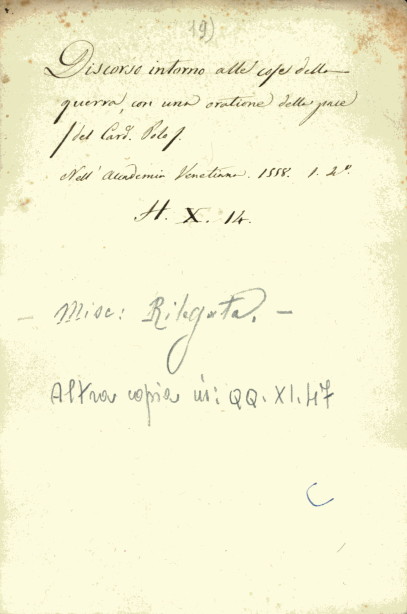 19)
Discorso intorno alle cose della
guerra, con una oratione della pace
/del Card. Polo/.
Nell' Academia Venetiana. 1558. 1. 4º.
H. X. 14.
— Misc: Rilegata. —
Altra copia in: QQ. XI. 47
C